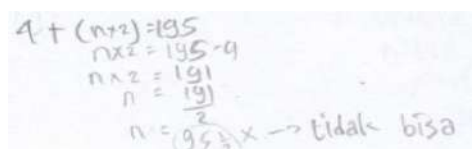 4 + (n×2) = 195
n×2 = 195-4
n×2 = 191
n = 191/2
n = (95½) × → tidak bisa